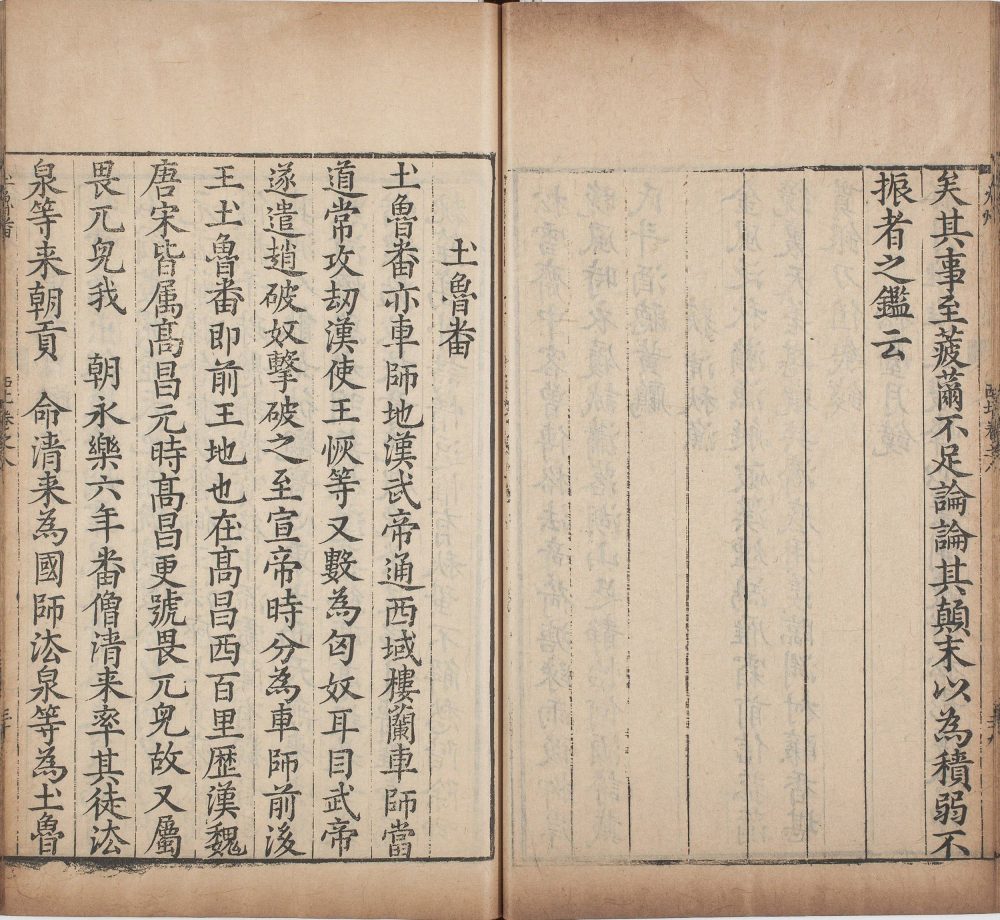 矣其事至菠薾不足論論其顛末以為積弱不
振者之鑑云
土魯番
土魯番亦車師地漢武帝通西域樓蘭車師當
道常攻劫漢使王恢等又數為匈奴耳目武帝
遂遣趙破奴擊破之至宣帝時分為車師前後
王土魯番即前王地也在高昌西百里歷漢魏
唐宋皆属高昌元時高昌更號畏兀兒故又屬
畏兀兒我 朝永樂六年番僧清来率其徒法
泉等来朝貢 命清来為國師法泉等為土魯